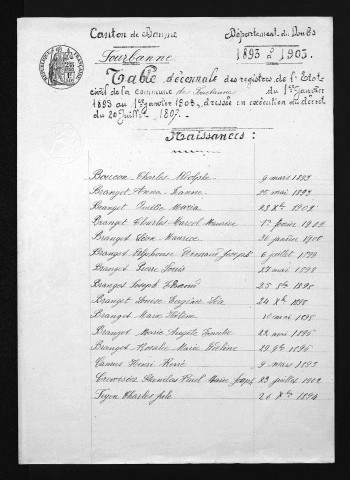 Canton de Baume
Département du Doubs
Fourbanne
1893 à 1903.
Table décennale des registres de l'Etat
civil de la commune de Fourbanne du 1er janvier
1893 au 1er janvier 1903, dressée en exécution du décret
du 20 Juillet 1807.
Naissances :
Charles Adolphe 9 mars 1893
Branget Anna Jeanne mai 1893
Branget Maria Xbre 1902
Branget Charles Marcel Maurice 1er février 1902
Branget Léon Maurice janvier 1901
Branget Alphonse Joseph 6 juillet 1899
Branget Pierre Louis mai 1898
Branget Joseph Edmond 25 1898
Branget Louise 24 Xbre
Branget Marie Hélène mai 1898
Branget Marie Angèle mai 1896
Branget Rosalie Marie Hélène 29 9bre 1896
Henri René 9 mars 1893
Stanislas Paul Marie Joseph 23 juillet 1902
Charles Jules 26 Xbre 1894